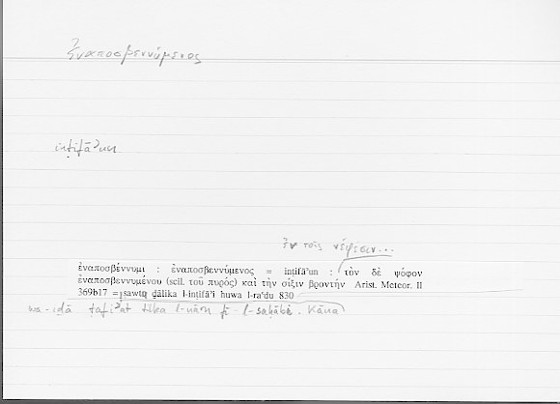 ἐναποσβεννύμενος
inṭifāʾun
ἐν τοῖς νέφεσιν...
ἐναποσβέννυμι : ἐναποσβεννύμενος = inṭifāʾun : τὸν δὲ ψόφον
ἐναποσβεννυμένου (scil. τοῦ πυρός) καὶ τὴν σίξιν βροντήν Arist. Meteor. II
369b17 = ṣawtu ḏālika l-inṭifāʾi huwa l-raʿdu 830
wa-iḏā ṭafiʾat tilka l-nāru fī l-saḥābi. Kāna